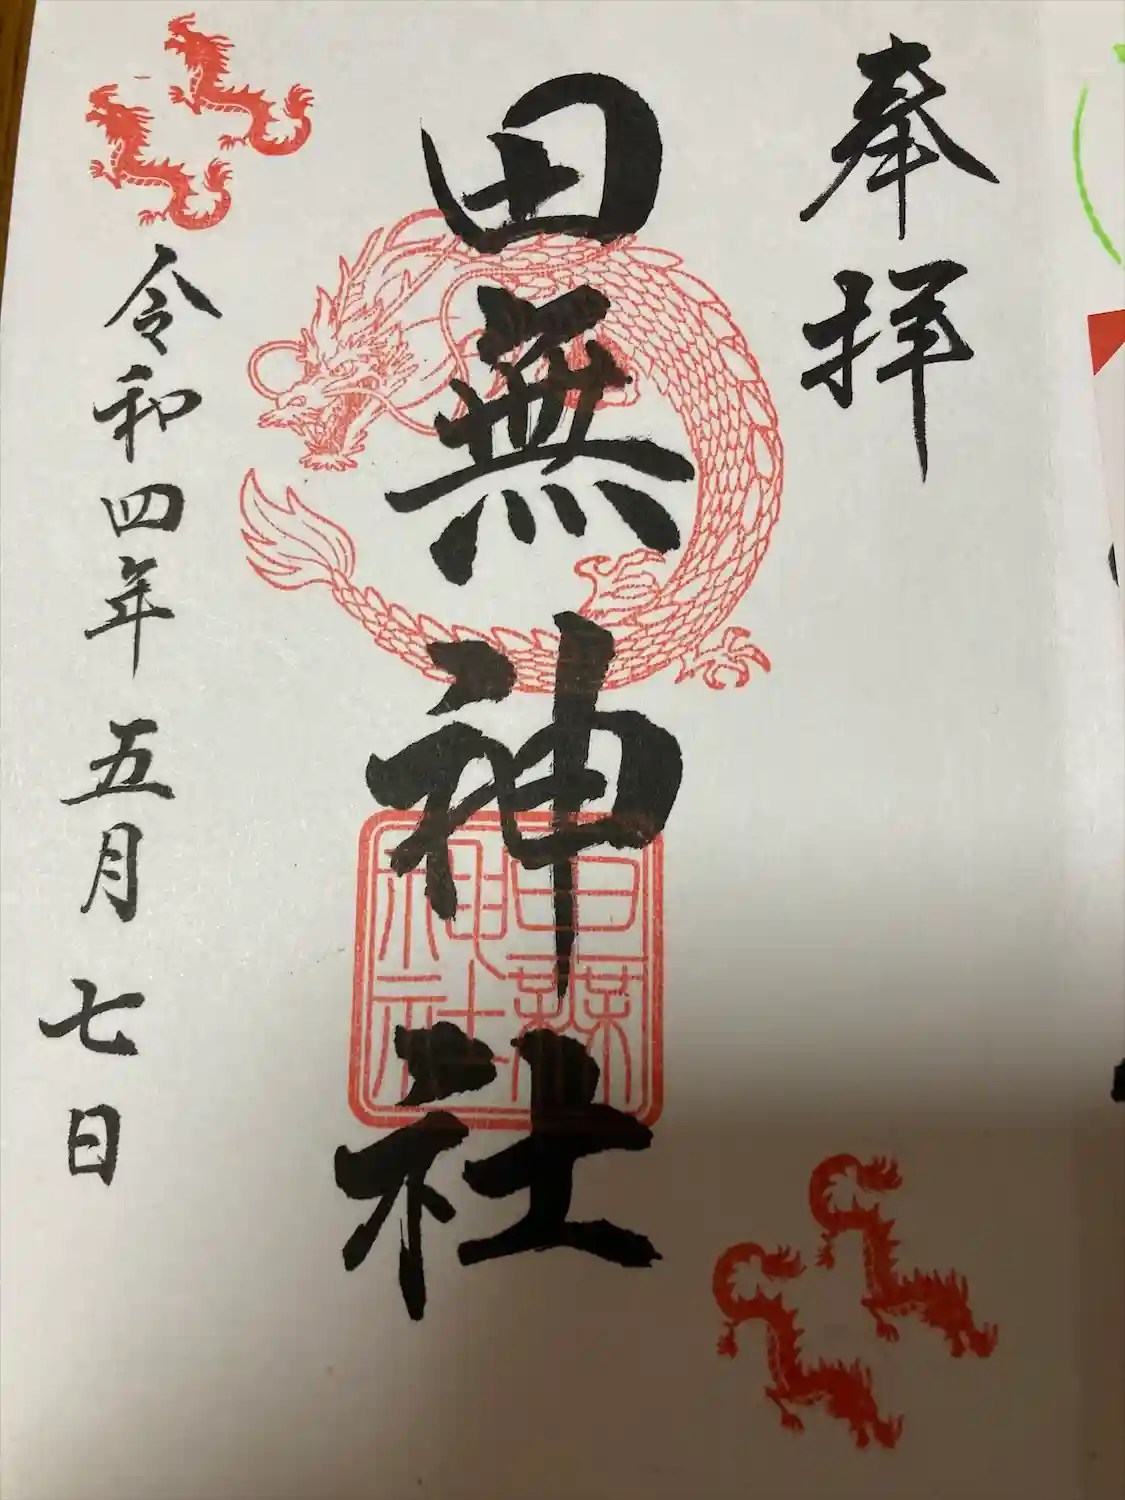 奉拝
田無神社
田無神社
令和四年五月七日